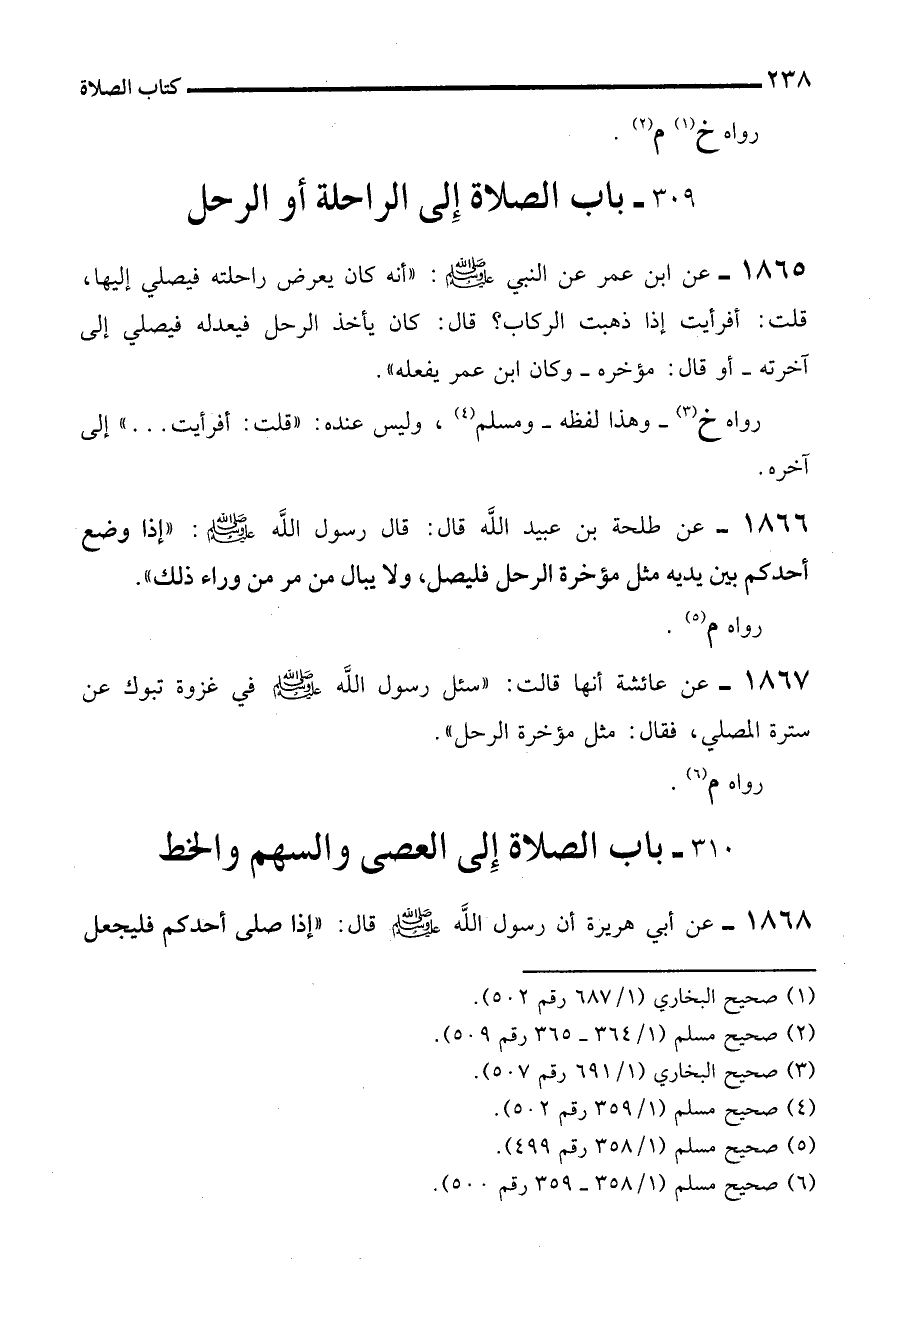 ٢٣٨ كتاب الصلاة
رواه خ(١) م(٢) .
٣٠٩ ـ باب الصلاة إلى الراحلة أو الرحل
١٨٦٥ ـ عن ابن عمر عن النبي ﷺ : «أنه كان يعرض راحلته فيصلي إليها،
قلت: أفرأيت إذا ذهبت الركاب؟ قال: كان يأخذ الرحل فيعدله فيصلي إلى
آخرته ـ أو قال: مؤخره ـ وكان ابن عمر يفعله».
رواه خ(٣) ـ وهذا لفظه ـ ومسلم(٤) ، وليس عنده: «قلت: أفرأيت...» إلى
آخره.
١٨٦٦ ـ عن طلحة بن عبيد اللَّه قال: قال رسول اللَّه ﷺ : «إذا وضع
أحدكم بين يديه مثل مؤخرة الرحل فليصل، ولا يبال من مر من وراء ذلك».
رواه م(٥) .
١٨٦٧ ـ عن عائشة أنها قالت: «سئل رسول اللَّه ﷺ في غزوة تبوك عن
سترة المصلي، فقال: مثل مؤخرة الرحل».
رواه م(٦) .
٣١٠ ـ باب الصلاة إلى العصى والسهم والخط
١٨٦٨ ـ عن أبي هريرة أن رسول اللَّه ﷺ قال: «إذا صلى أحدكم فليجعل
(١) صحيح البخاري (١/ ٦٨٧ رقم ٥٠٢).
(٢) صحيح مسلم (١/ ٣٦٤ ـ ٣٦٥ رقم ٥٠٩).
(٣) صحيح البخاري (١/ ٦٩١ رقم ٥٠٧).
(٤) صحيح مسلم (١/ ٣٥٩ رقم ٥٠٢).
(٥) صحيح مسلم (١/ ٣٥٨ رقم ٤٩٩).
(٦) صحيح مسلم (١/ ٣٥٨ ـ ٣٥٩ رقم ٥٠٠).